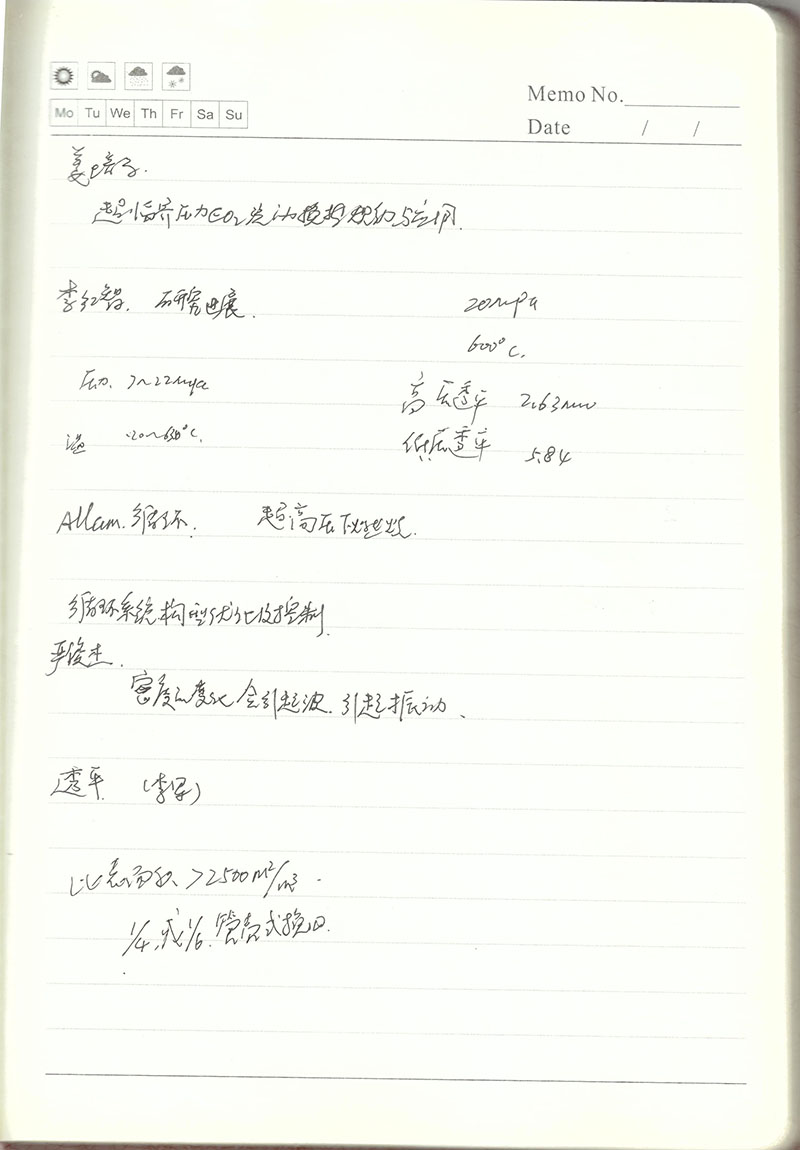 Mo Tu We Th Fr Sa Su
Memo No.
Date / /
姜培学.
超临界压力CO2流动换热规律与应用.
李红智. 研究进展.
20mpa
600°C.
压力. 7~22mpa
高压透平 2.63mm
温 20~630°C.
低压透平 5.84
Allam. 循环. 超高压下燃烧.
循环系统构型优化及控制.
严俊杰.
密度的变化会引起波. 引起振动、
透平 (李军)
比表面积 >2500m²/m³.
1/4, 或1/6. 管壳式换